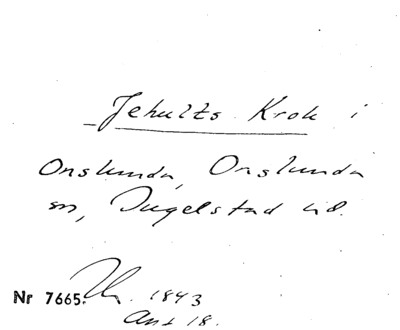 Jehults Krok i
Onslunda, Onslunda
sn, Ingelstad hd.
Nr 7665. Th. 1843
Ant 18.